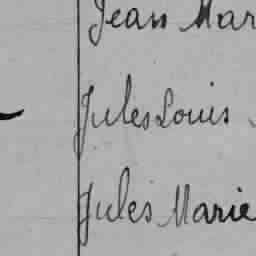 Jean Mar
Jules Louis
Jules Marie